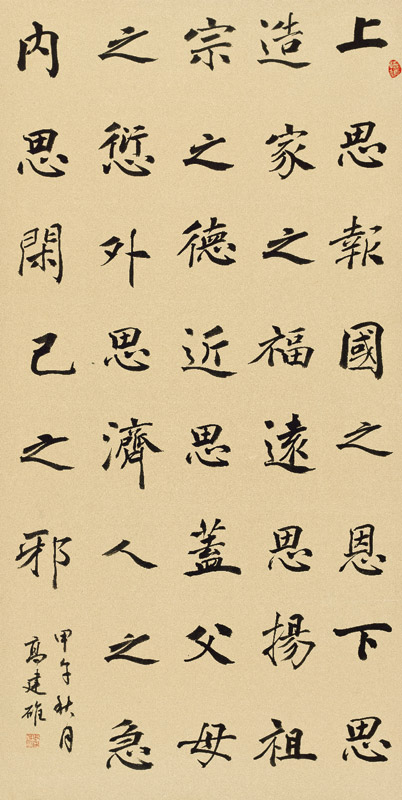 上思報國之恩下思
造家之福遠思揚祖
宗之德近思蓋父母
之愆外思濟人之急
内思閑己之邪
甲午秋月
高建雄